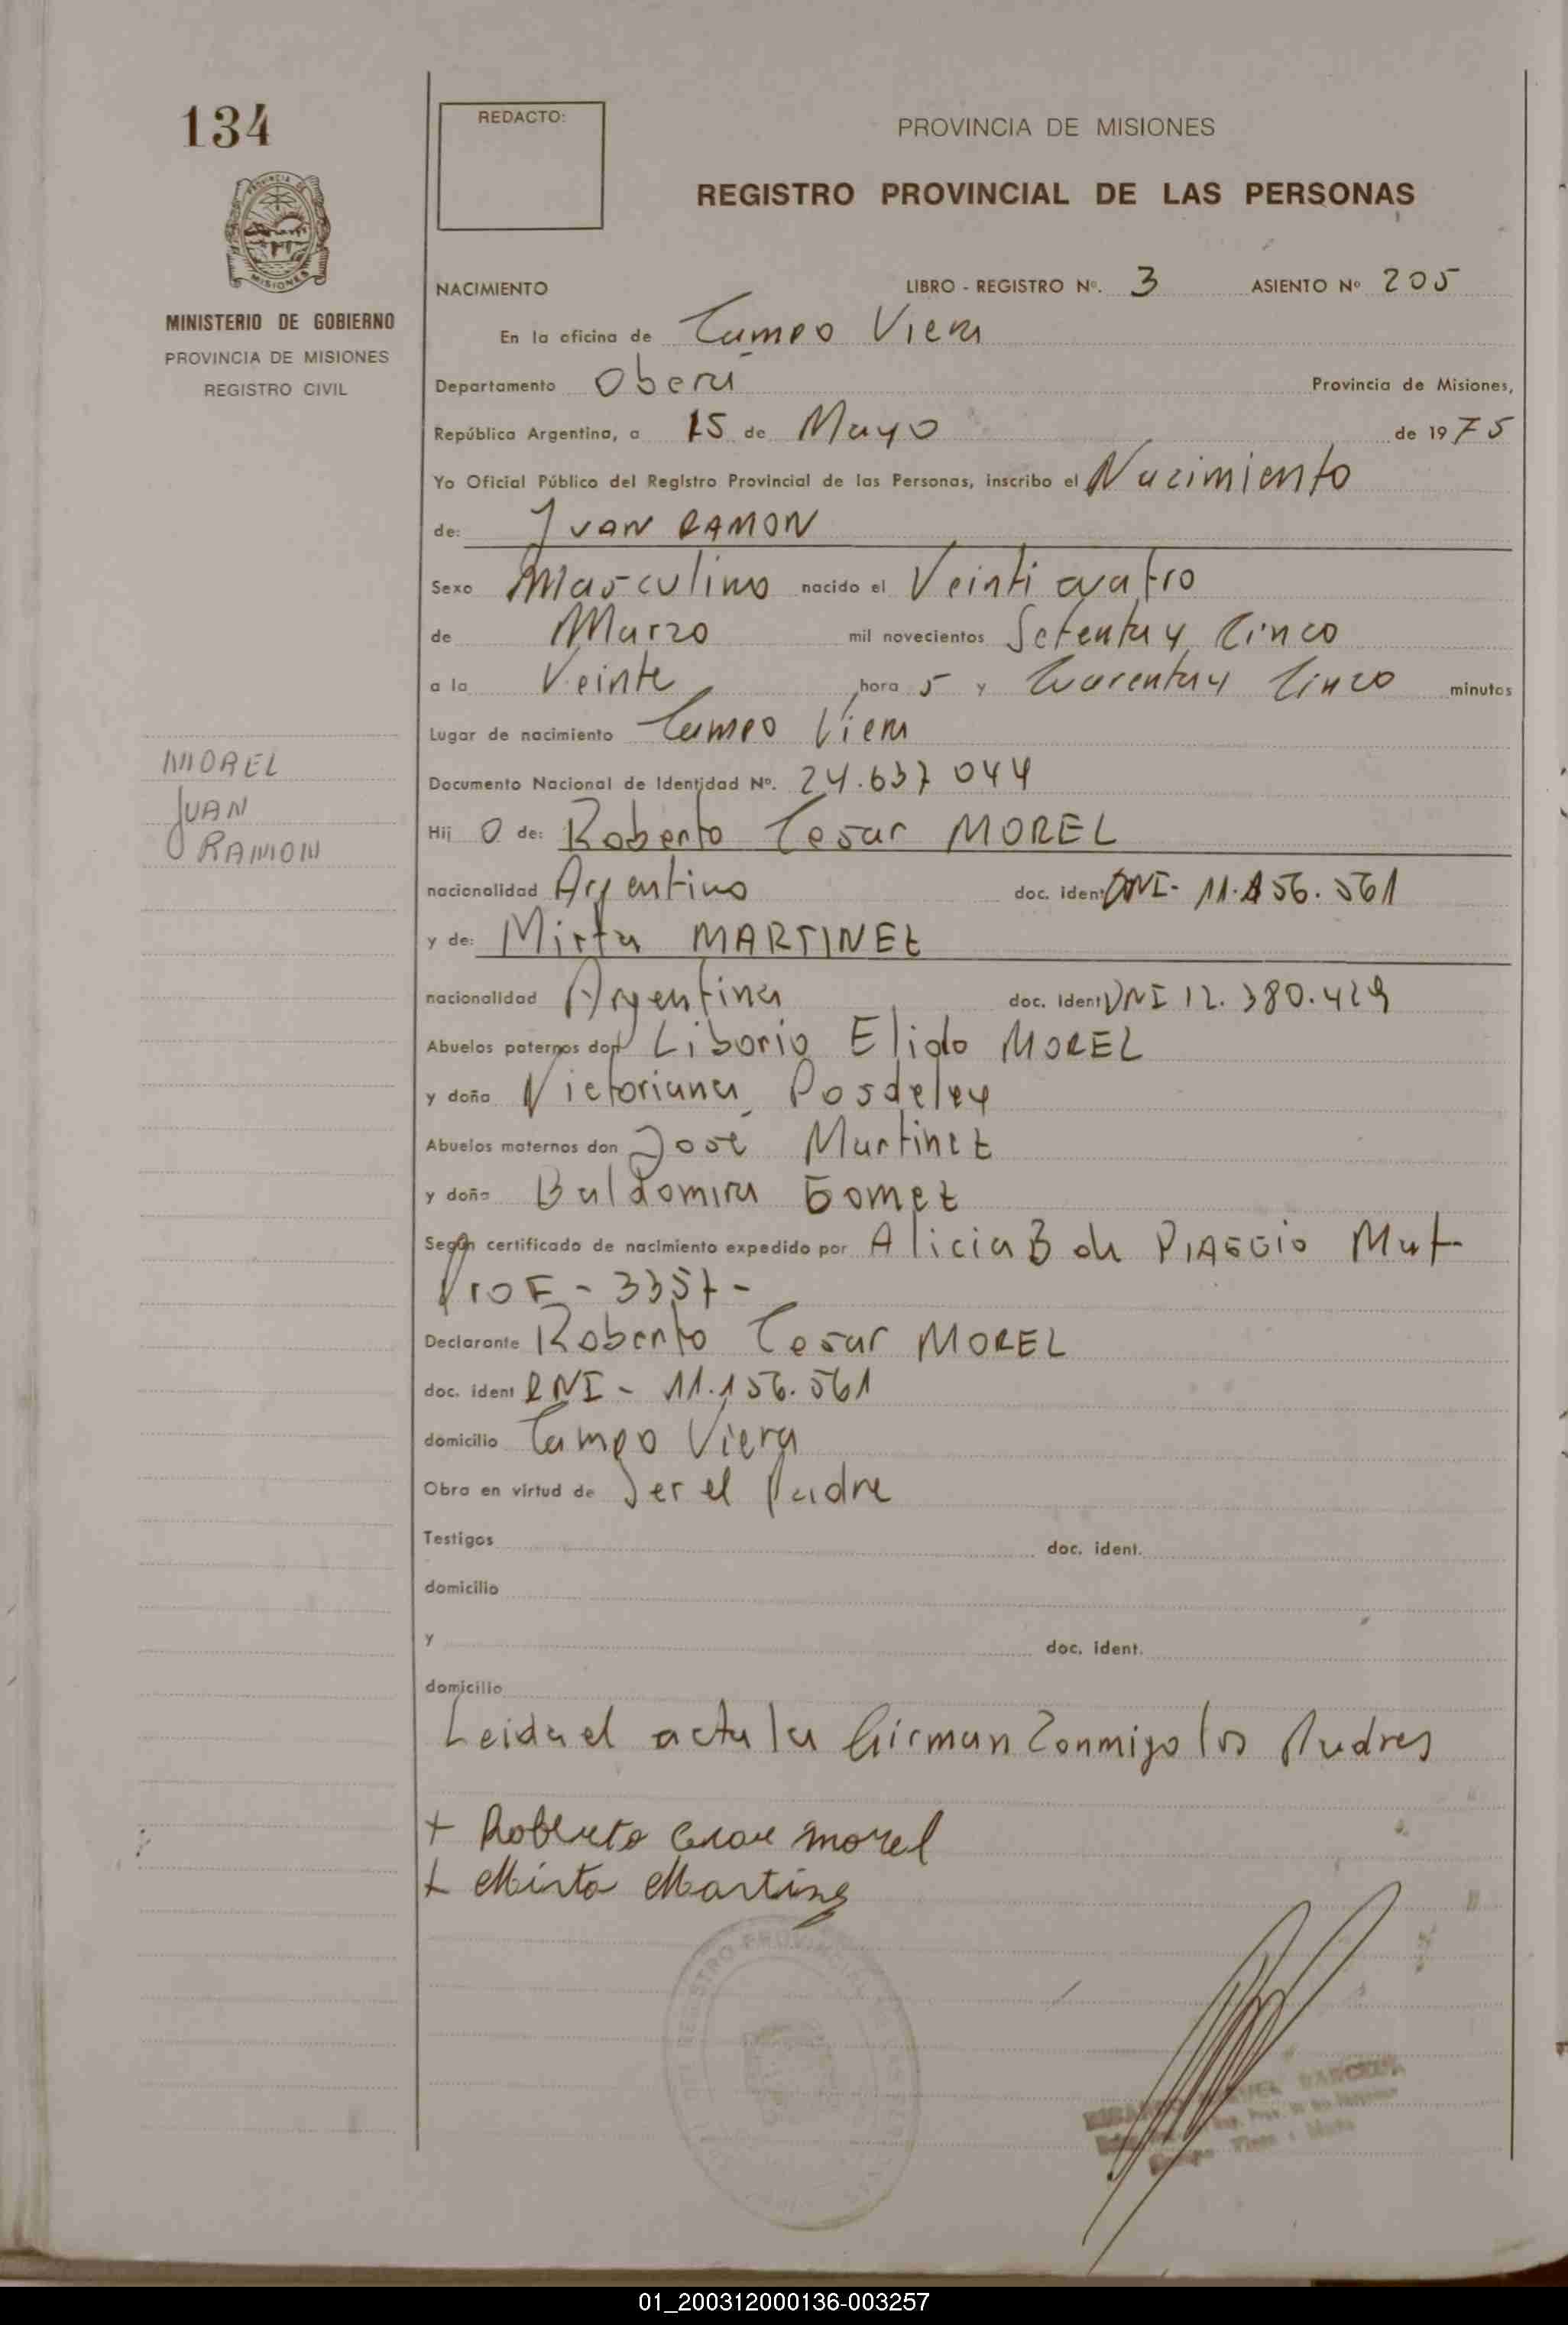 134
REDACTO:
PROVINCIA DE MISIONES
REGISTRO PROVINCIAL DE LAS PERSONAS
PROVINCIA DE
MISIONES
MINISTERIO DE GOBIERNO
PROVINCIA DE MISIONES
REGISTRO CIVIL
NACIMIENTO LIBRO - REGISTRO Nº. 3 ASIENTO Nº 205
En la oficina de Campo Viera
Departamento Oberá Provincia de Misiones,
República Argentina, a 15 de Mayo de 1975
Yo Oficial Público del Registro Provincial de las Personas, inscribo el Nacimiento
de: JUAN RAMON
Sexo Masculino nacido el Veinti cuatro
de Marzo mil novecientos Setenta y Cinco
a la Veinte hora s y Cuarenta y Cinco minutos
Lugar de nacimiento Campo Viera
Documento Nacional de Identidad Nº. 24.637 044
MOREL
JUAN
RAMON
Hij O de: Roberto Cesar MOREL
nacionalidad Argentino doc. ident DNI- 11.156.561
y de: Mirta MARTINEZ
nacionalidad Argentina doc. ident DNI 12.380.429
Abuelos paternos don Liborio Elido MOREL
y doña Victoriana Posdeley
Abuelos maternos don José Martinez
y doña Baldomira Gomez
Según certificado de nacimiento expedido por Alicia B de PIAGGIO Mat
Prof - 3357-
Declarante Roberto Cesar MOREL
doc. ident DNI - 11.156.561
domicilio Campo Viera
Obra en virtud de Ser el Padre
Testigos doc. ident.
domicilio
y doc. ident.
domicilio
Leida el acta la firman Conmigo los Padres
+ Roberto Cesar Morel
+ Mirta Martinez
REGISTRO PROVINCIAL
01_200312000136-003257